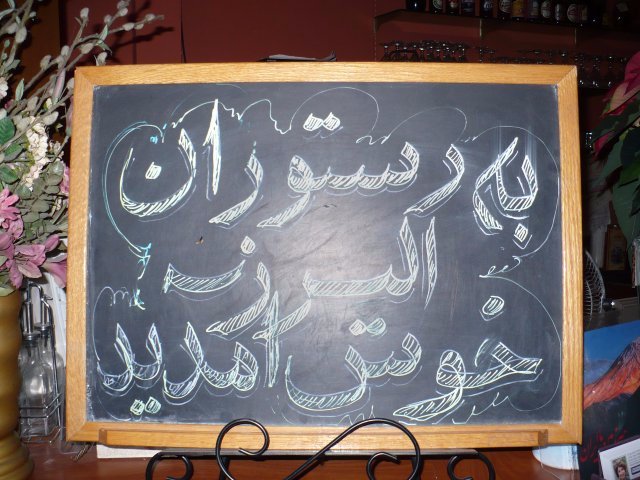 به رستوران
البرز
خوش آمدید